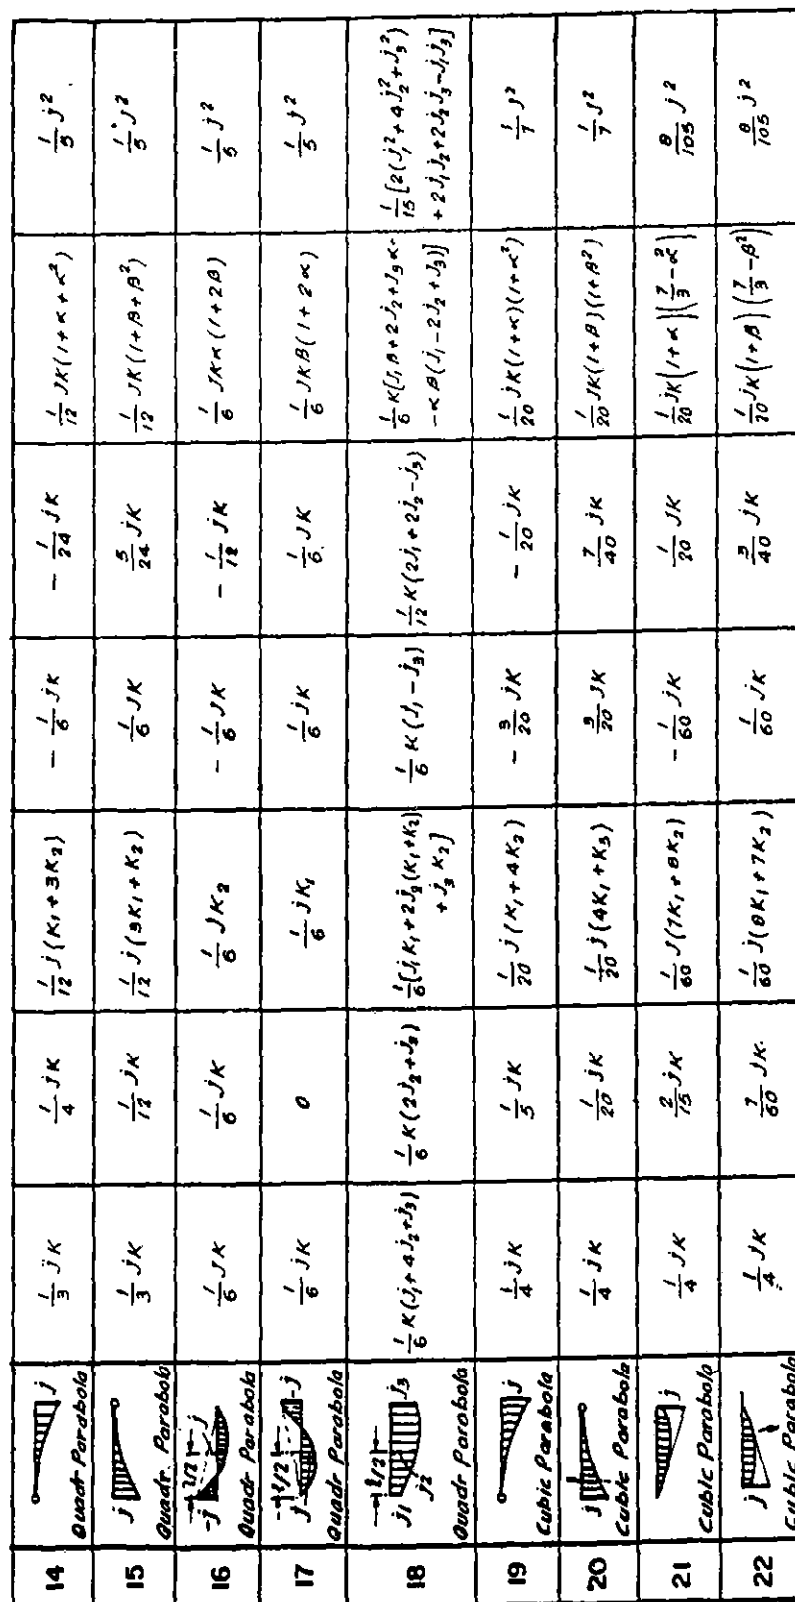 14 j Quadr Parabola 1/3 jK 1/4 jK 1/12 j(K₁+3K₂) -1/6 jK -1/24 jK 1/12 JK(1+α+α²) 1/5 j²
15 j Quadr. Parabola 1/3 jK 1/12 jK 1/12 j(3K₁+K₂) 1/6 JK 5/24 jK 1/12 JK(1+β+β²) 1/5 J²
16 -j l/2 j Quadr Parabola 1/6 JK 1/6 jK 1/6 JK₂ -1/6 JK -1/12 jK 1/6 JKα(1+2β) 1/5 j²
17 j l/2 -j Quadr Parabola 1/6 jK 0 1/6 jK₁ 1/6 jK 1/6 JK 1/6 JKβ(1+2α) 1/5 j²
18 j₁ l/2 j₂ J₃ Quadr Parabola 1/6 K(j₁+4j₂+j₃) 1/6 K(2j₂+j₃) 1/6[j₁K₁+2j₂(K₁+K₂)
+j₃ K₂] 1/6 K(J₁-j₃) 1/12 K(2j₁+2j₂-j₃) 1/6 K[J₁β+2J₂+J₃α-
-αβ(j₁-2J₂+J₃)] 1/15[2(j₁²+4j₂²+j₃²)
+2j₁j₂+2j₂j₃-j₁j₃]
19 j Cubic Parabola 1/4 jK 1/5 jK 1/20 j(K₁+4K₂) -3/20 jK -1/20 jK 1/20 jK(1+α)(1+α²) 1/7 J²
20 j Cubic Parabola 1/4 jK 1/20 jK 1/20 j(4K₁+K₃) 3/20 JK 7/40 jK 1/20 JK(1+β)(1+β²) 1/7 J²
21 j Cubic Parabola 1/4 jK 2/15 jK 1/60 J(7K₁+8K₂) -1/60 jK 1/20 JK 1/20 jK(1+α)(7/3-α²) 8/105 j²
22 j Cubic Parabola 1/4 JK 7/60 JK 1/60 j(8K₁+7K₂) 1/60 jK 3/40 JK 1/20 jK(1+β)(7/3-β²) 8/105 j²